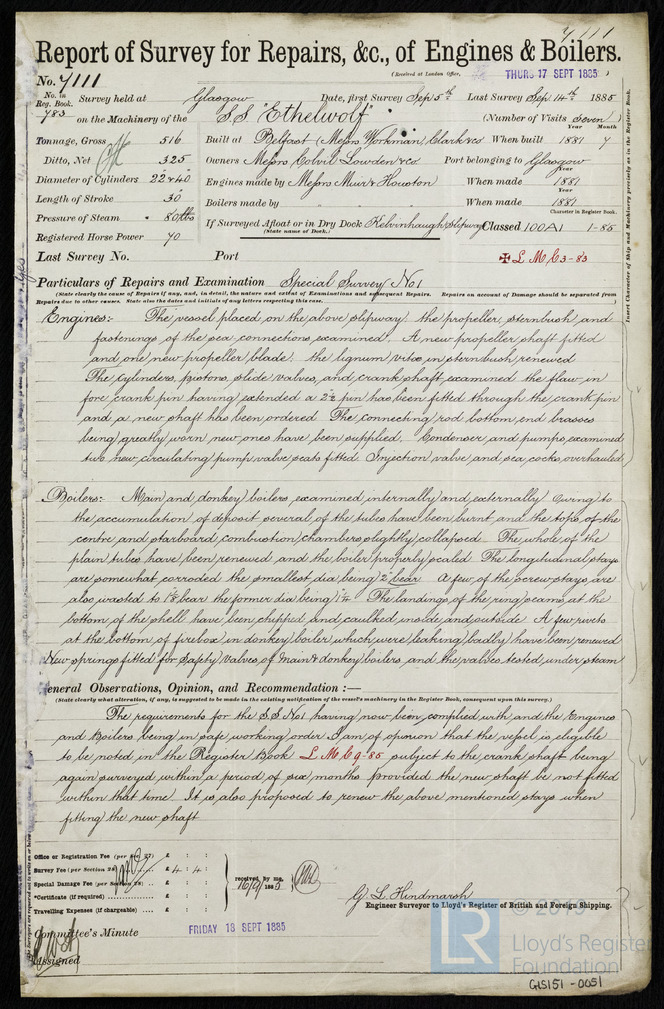 7111
Report of Survey for Repairs, &c., of Engines & Boilers.
(Received at London Office, THURS 17 SEPT 1885 )
No. 7111
No. in Reg. Book. 783
Survey held at Glasgow Date, first Survey Sep 5th Last Survey Sep 14th 1885
on the Machinery of the S S "Ethelwolf" (Number of Visits Seven)
Tonnage, Gross 516
Ditto, Net 325
Diameter of Cylinders 22 & 40
Length of Stroke 30
Pressure of Steam 80 lbs
Registered Horse Power 70
Year Month
Built at Belfast (Messrs Workman, Clark & Co When built 1881 7
Owners Messrs Colvil Lowden & Co Port belonging to Glasgow
Year
Engines made by Messrs Muir & Houston When made 1881
Boilers made by When made 1881
Character in Register Book.
If Surveyed Afloat or in Dry Dock Kelvinhaugh Slipway Classed 100A1 1-85
(State name of Dock.)
Last Survey No. Port ✠ L M C 3-83
Particulars of Repairs and Examination Special Survey No 1
(State clearly the cause of Repairs if any, and, in detail, the nature and extent of Examinations and subsequent Repairs. Repairs on account of Damage should be separated from
Repairs due to other causes. State also the dates and initials of any letters respecting this case.)
Engines:- The vessel placed on the above slipway. the propeller, sternbush and
fastenings of the sea connections examined. A new propeller shaft fitted
and one new propeller blade. the lignum vitæ in sternbush renewed
The cylinders, pistons, slide valves, and crank shaft examined the flaw in
fore crank pin having extended a 2½ pin has been fitted through the crank pin
and a new shaft has been ordered The connecting rod bottom end brasses
being greatly worn new ones have been supplied. Condenser and pumps examined
two new circulating pump valve seats fitted. Injection valve and sea cocks overhauled
Boilers:- Main and donkey boilers, examined internally and externally Owing to
the accumulation of deposit several of the tubes have been burnt and the tops of the
centre and starboard combustion chambers slightly collapsed. The whole of the
plain tubes have been renewed and the boiler properly scaled The longitudinal stays
are somewhat corroded the smallest dia being 2" bear A few of the screw stays are
also wasted to 1⅛ bear the former dia being 1¼ The landings of the ring seams at the
bottom of the shell have been chipped and caulked inside and outside A few rivets
at the bottom of firebox in donkey boiler which were leaking badly have been renewed
New springs fitted for safety valves of main & donkey boilers, and the valves tested under steam
General Observations, Opinion, and Recommendation :—
(State clearly what alteration, if any, is suggested to be made in the existing notification of the vessel's machinery in the Register Book, consequent upon this survey.)
The requirements for the S.S. No 1 having now been complied with and the Engines
and Boilers being in safe working order I am of opinion that the vessel is eligible
to be noted in the Register Book L M C 9-85 subject to the crank shaft being
again surveyed within a period of six months provided the new shaft be not fitted
within that time It is also proposed to renew the above mentioned stays when
fitting the new shaft
Office or Registration Fee (per Sec. 27) £ : :
Survey Fee (per Section 28) £ 4 : 4 :
Special Damage Fee (per Section 28) £ : :
*Certificate (if required) £ : :
Travelling Expenses (if chargeable) £ : :
received by me,
16/9/1885
G L Hindmarsh
Engineer Surveyor to Lloyd's Register of British and Foreign Shipping.
Committee's Minute FRIDAY 18 SEPT 1885
Assigned
Insert Character of Ship and Machinery precisely as in the Register Book.
LR
© 2019
Lloyd's Register
Foundation
GLS151-0051